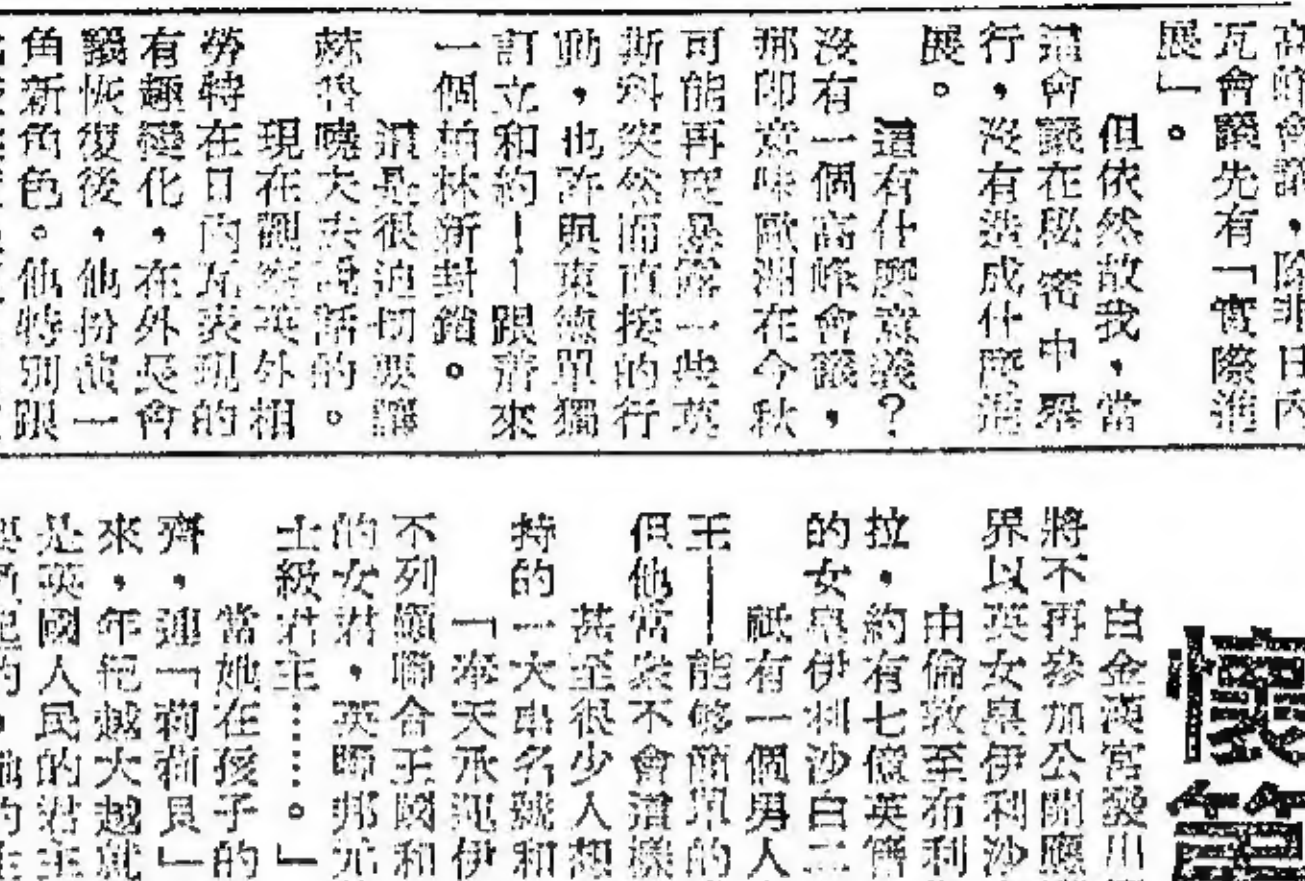 高峰會議,除非日內
瓦會議先有「實際進
展」。
但依然故我,當
這會議在秘密中舉
行,沒有造成什麼進
展。
這有什麼意義?
沒有一個高峰會議,
那卽意味歐洲在今秋
可能再度暴露一些莫
斯科突然而直接的行
動,也許與東德單獨
訂立和約——跟着來
一個柏林新封鎖。
這是很迫切要讓
赫魯曉夫去說話的。
現在觀察英外相
勞特在日內瓦表現的
有趣變化,在外長會
議恢復後,他份演一
角新角色。他特別跟
白金漢宮發出
將不再參加公開應
界以英女皇伊利沙
由倫敦至布利
拉,約有七億英
的女皇伊利沙白二
祗有一個男人
王——能够簡單的
但他當衆不會這樣
甚至很少人想
持的一大串名號和
「奉天承運伊
不列顚聯合王國和
的女君,英聯邦元
士級君主……。」
當她在孩子的
齊,連「莉莉貝」
來,年紀越大越
是英國人民的君主